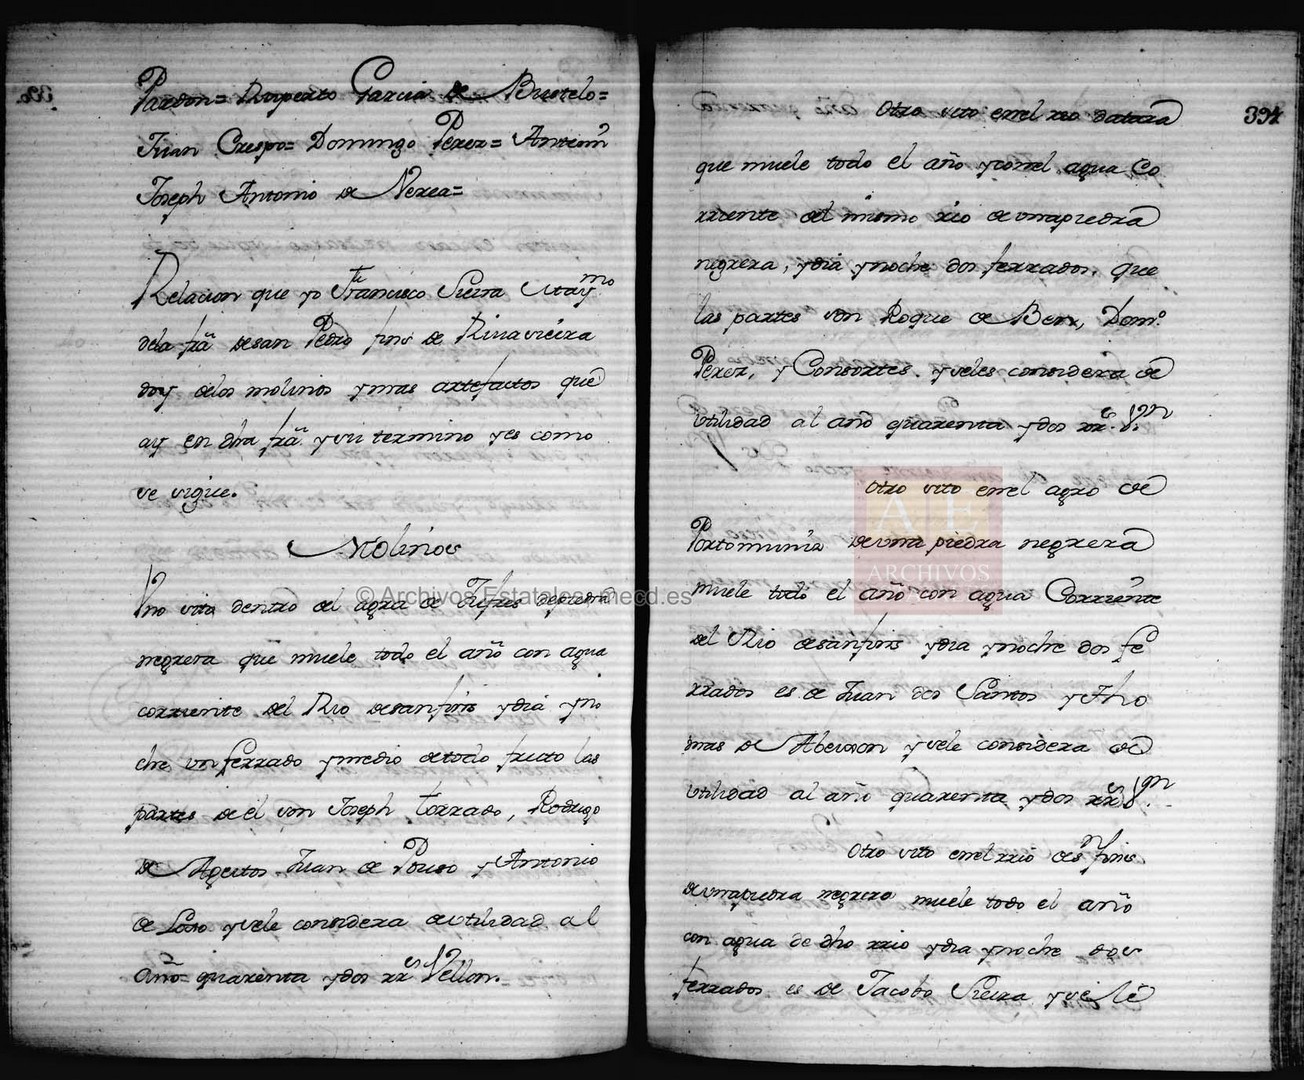 Pardon= Ruperto Garcia de Bustelo=
Juan Crespo= Domingo Perez= Antonio
Joseph Antonio de Nerea=
Relacion que yo Francisco Sieira Maymo
dela fra de san Pedro fins de Rinavieira
doy delos molinos y mas artefactos que
ay en dha fra y su termino y es como
se sigue.
Molinos
Uno sito dentro del agra de depiedra
negrera que muele todo el año con agua
corriente del Rio desanfins y dia y no
che un ferrado y medio detodo fruto las
partes de el son Joseph Torrado, Rodrigo
de Ageitos Juan de Pouso y Antonio
de y sele considera de utilidad al
año= quarenta y dos rrs Vellon.
394
Otro sito en el rio
que muele todo el año y con el agua Co
rriente del mismo rio de una piedra
negrera, y dia y noche dos ferrados, que
las partes son Roque de Ben, Domo.
Perez, y Consortes. y seles considera de
utilidad al año quarenta y dos rrs. Von
Otro sito en el agro de
Portomuniz de una piedra negrera
muele todo el año con agua Corriente
del Rio desanfins y dia y noche dos fe
rrados es de Juan dos Santos y Tho
mas de Abeixon y sele considera de
utilidad al año quarenta y dos rrs Von
Otro sito en el rrio de Sn fins
de una piedra negrera muele todo el año
con agua de dho rrio y dia y noche dos
ferrados es de Jacobo Sieira y se le
© Archivos Estatales, mecd.es
AE
ARCHIVOS